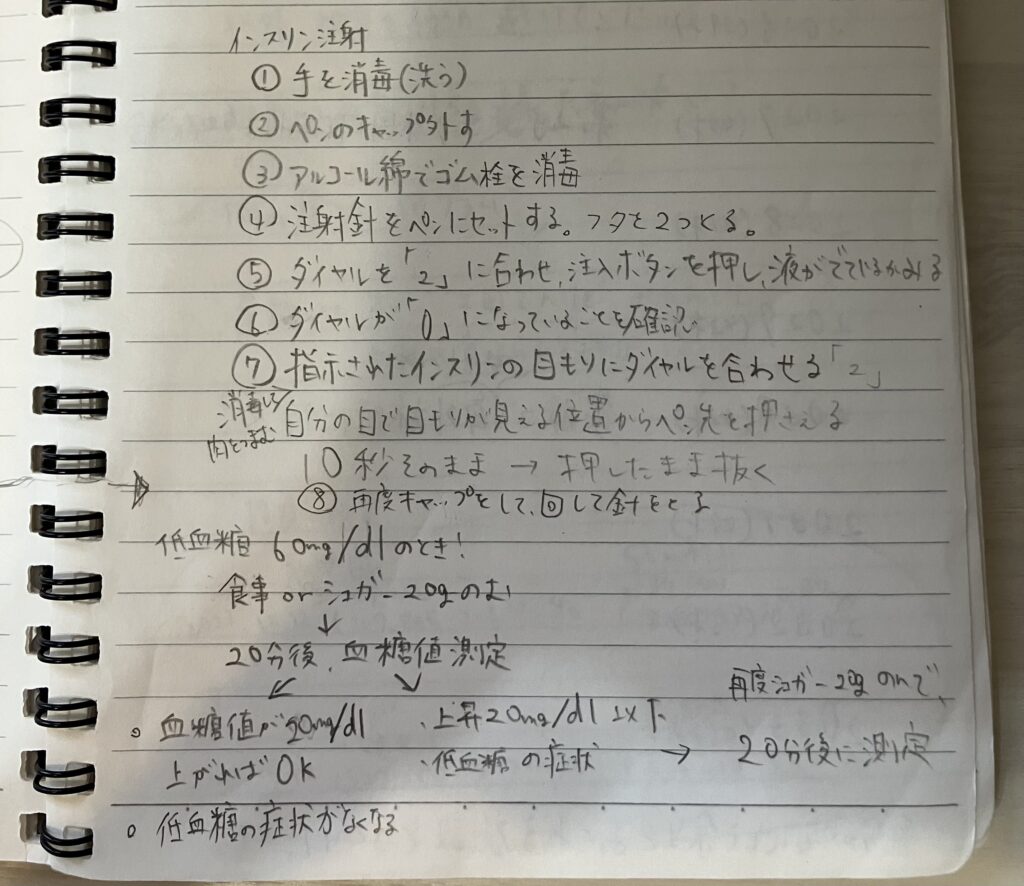 インスリン注射
① 手を消毒(洗う)
② ペンのキャップ外す
③ アルコール綿でゴム栓を消毒
④ 注射針をペンにセットする。フタを2つとる。
⑤ ダイヤルを「2」に合わせ、注入ボタンを押し、液がでているかみる
⑥ ダイヤルが「0」になっていることを確認
⑦ 指示されたインスリンの目もりにダイヤルを合わせる「2」
消毒し
肉をつまむ
自分の目で目もりが見える位置からペン先を押さえる
10秒そのまま → 押したまま抜く
⑧ 再度キャップをして、回して針をとる
低血糖 60mg/dlのとき!
食事 or シュガー20gのむ
↓
20分後、血糖値測定
○ 血糖値が20mg/dl
上がればOK
○ 低血糖の症状がなくなる
・上昇20mg/dl以下
・低血糖の症状
→
再度シュガー20gのんで、
20分後に測定